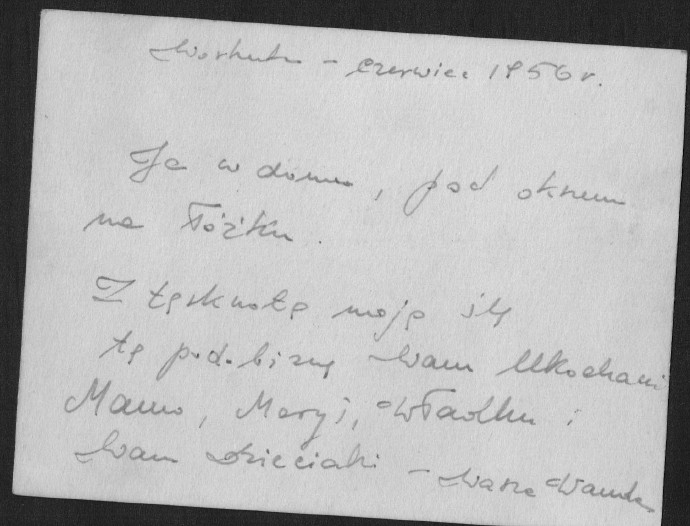 Workuta - czerwiec 1956 r.
Ja w domu, pod oknem
na łóżku.
Z tęsknotą moją ślę
tę podobiznę Wam Ukochani
Mamo, Marysi, Władku i
Wam Dzieciaki - Wasza Wanda